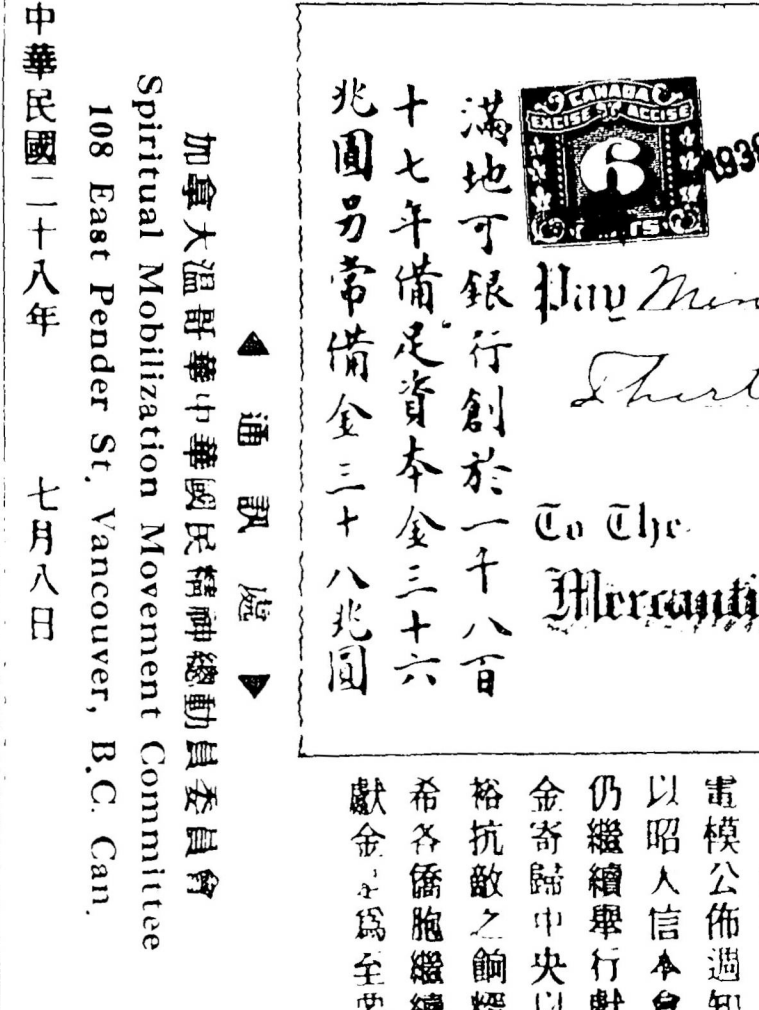 CANADA
EXCISE ACCISE
6
Pay
To The
Mercanti
滿地可銀行創於一千八百
十七年備足資本金三十六
兆圓另常備金三十八兆圓
模公佈週知
以昭人信本會
仍繼續舉行獻
金寄歸中央以
裕抗敵之餉糈
希各僑胞繼續
獻金 爲至要
通訊處
加拿大溫哥華中華國民精神總動員委員會
Spiritual Mobilization Movement Committee
108 East Pender St. Vancouver, B.C. Can.
中華民國二十八年 七月八日